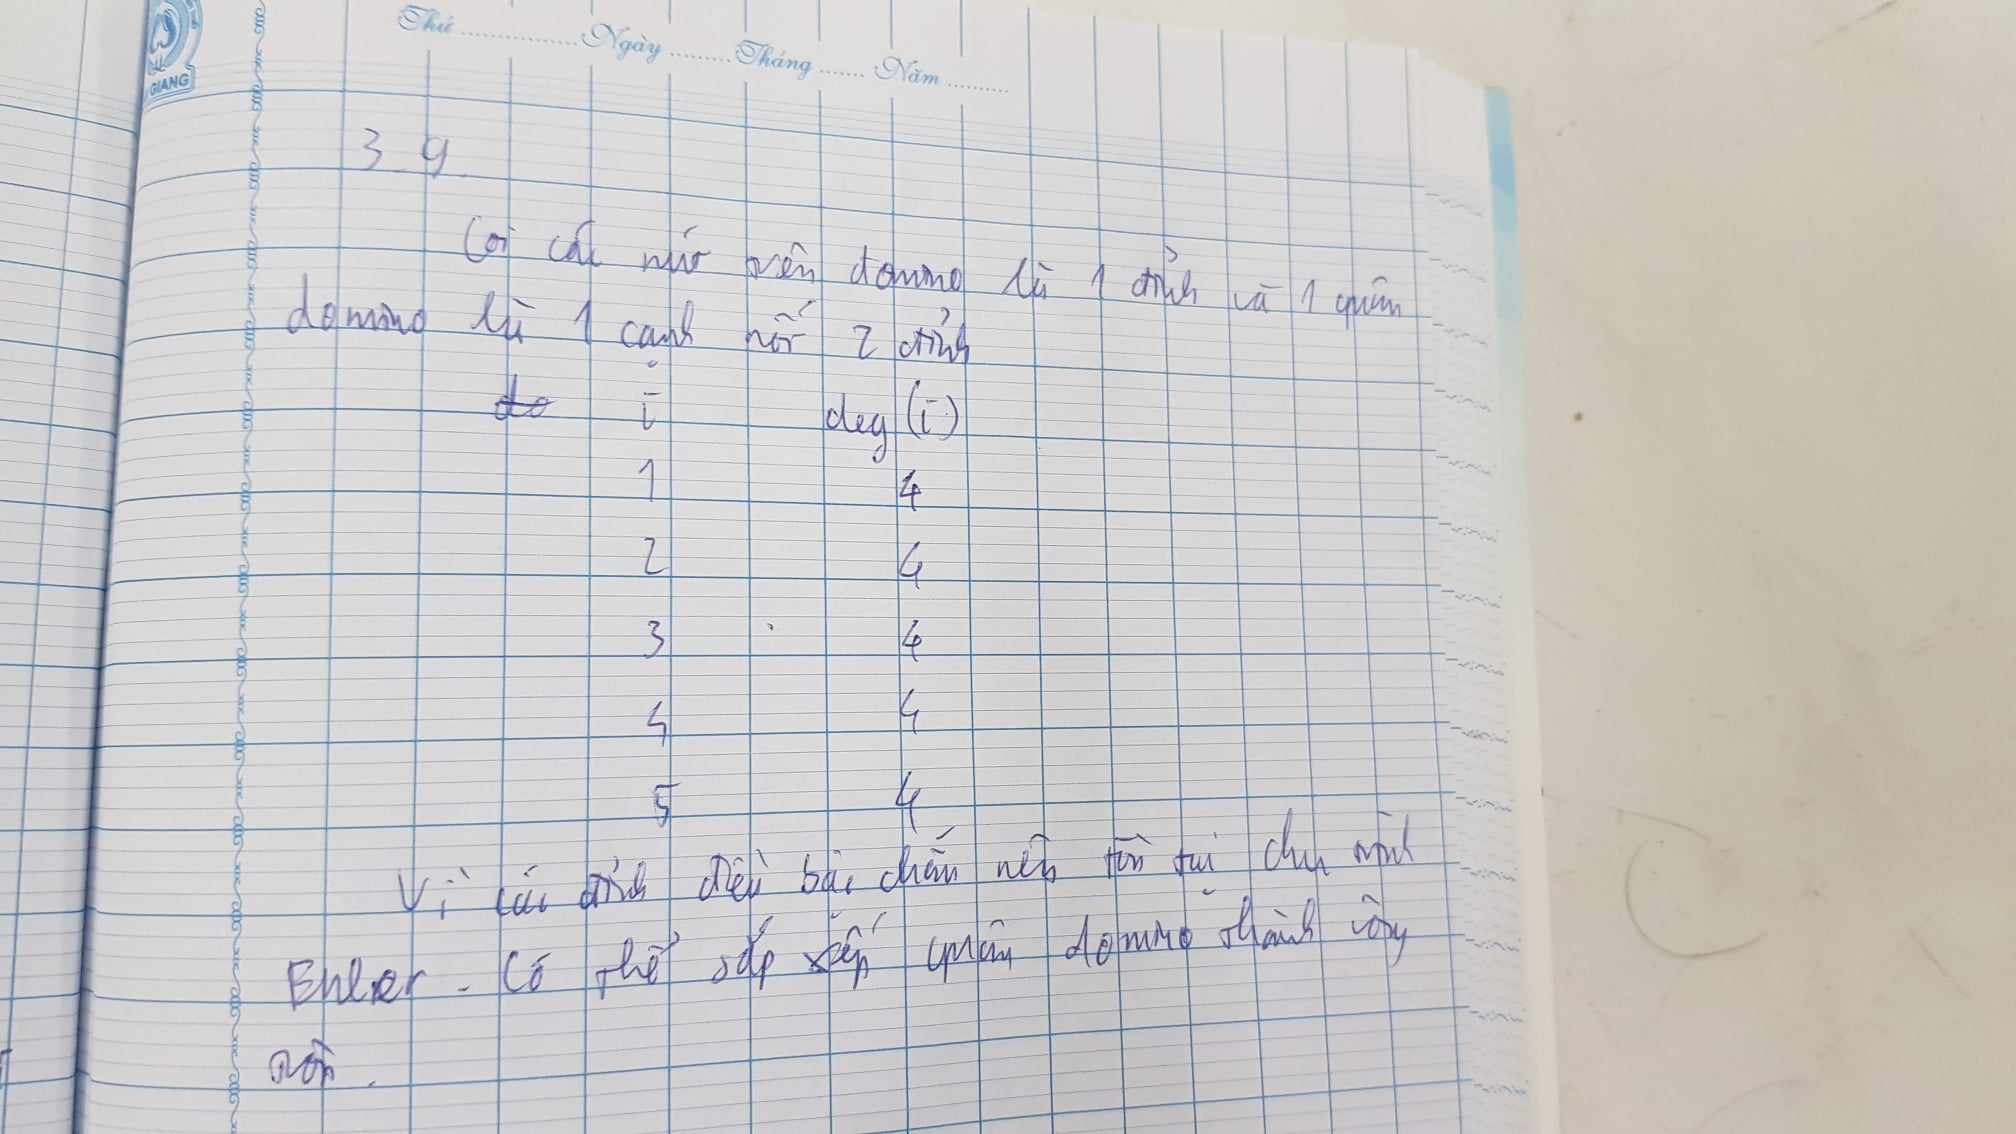 GIANG
Thứ ........ Ngày ........ Tháng ....... Năm .........
3 9
Coi các nút trên domino là 1 đỉnh và 1 quân
domino là 1 cạnh nối 2 đỉnh
do i deg (i)
1 4
2 4
3 4
4 4
5 4
Vì các đỉnh đều bậc chẵn nên tồn tại chu trình
Euler. Có thể sắp xếp quân domino thành vòng
tròn.